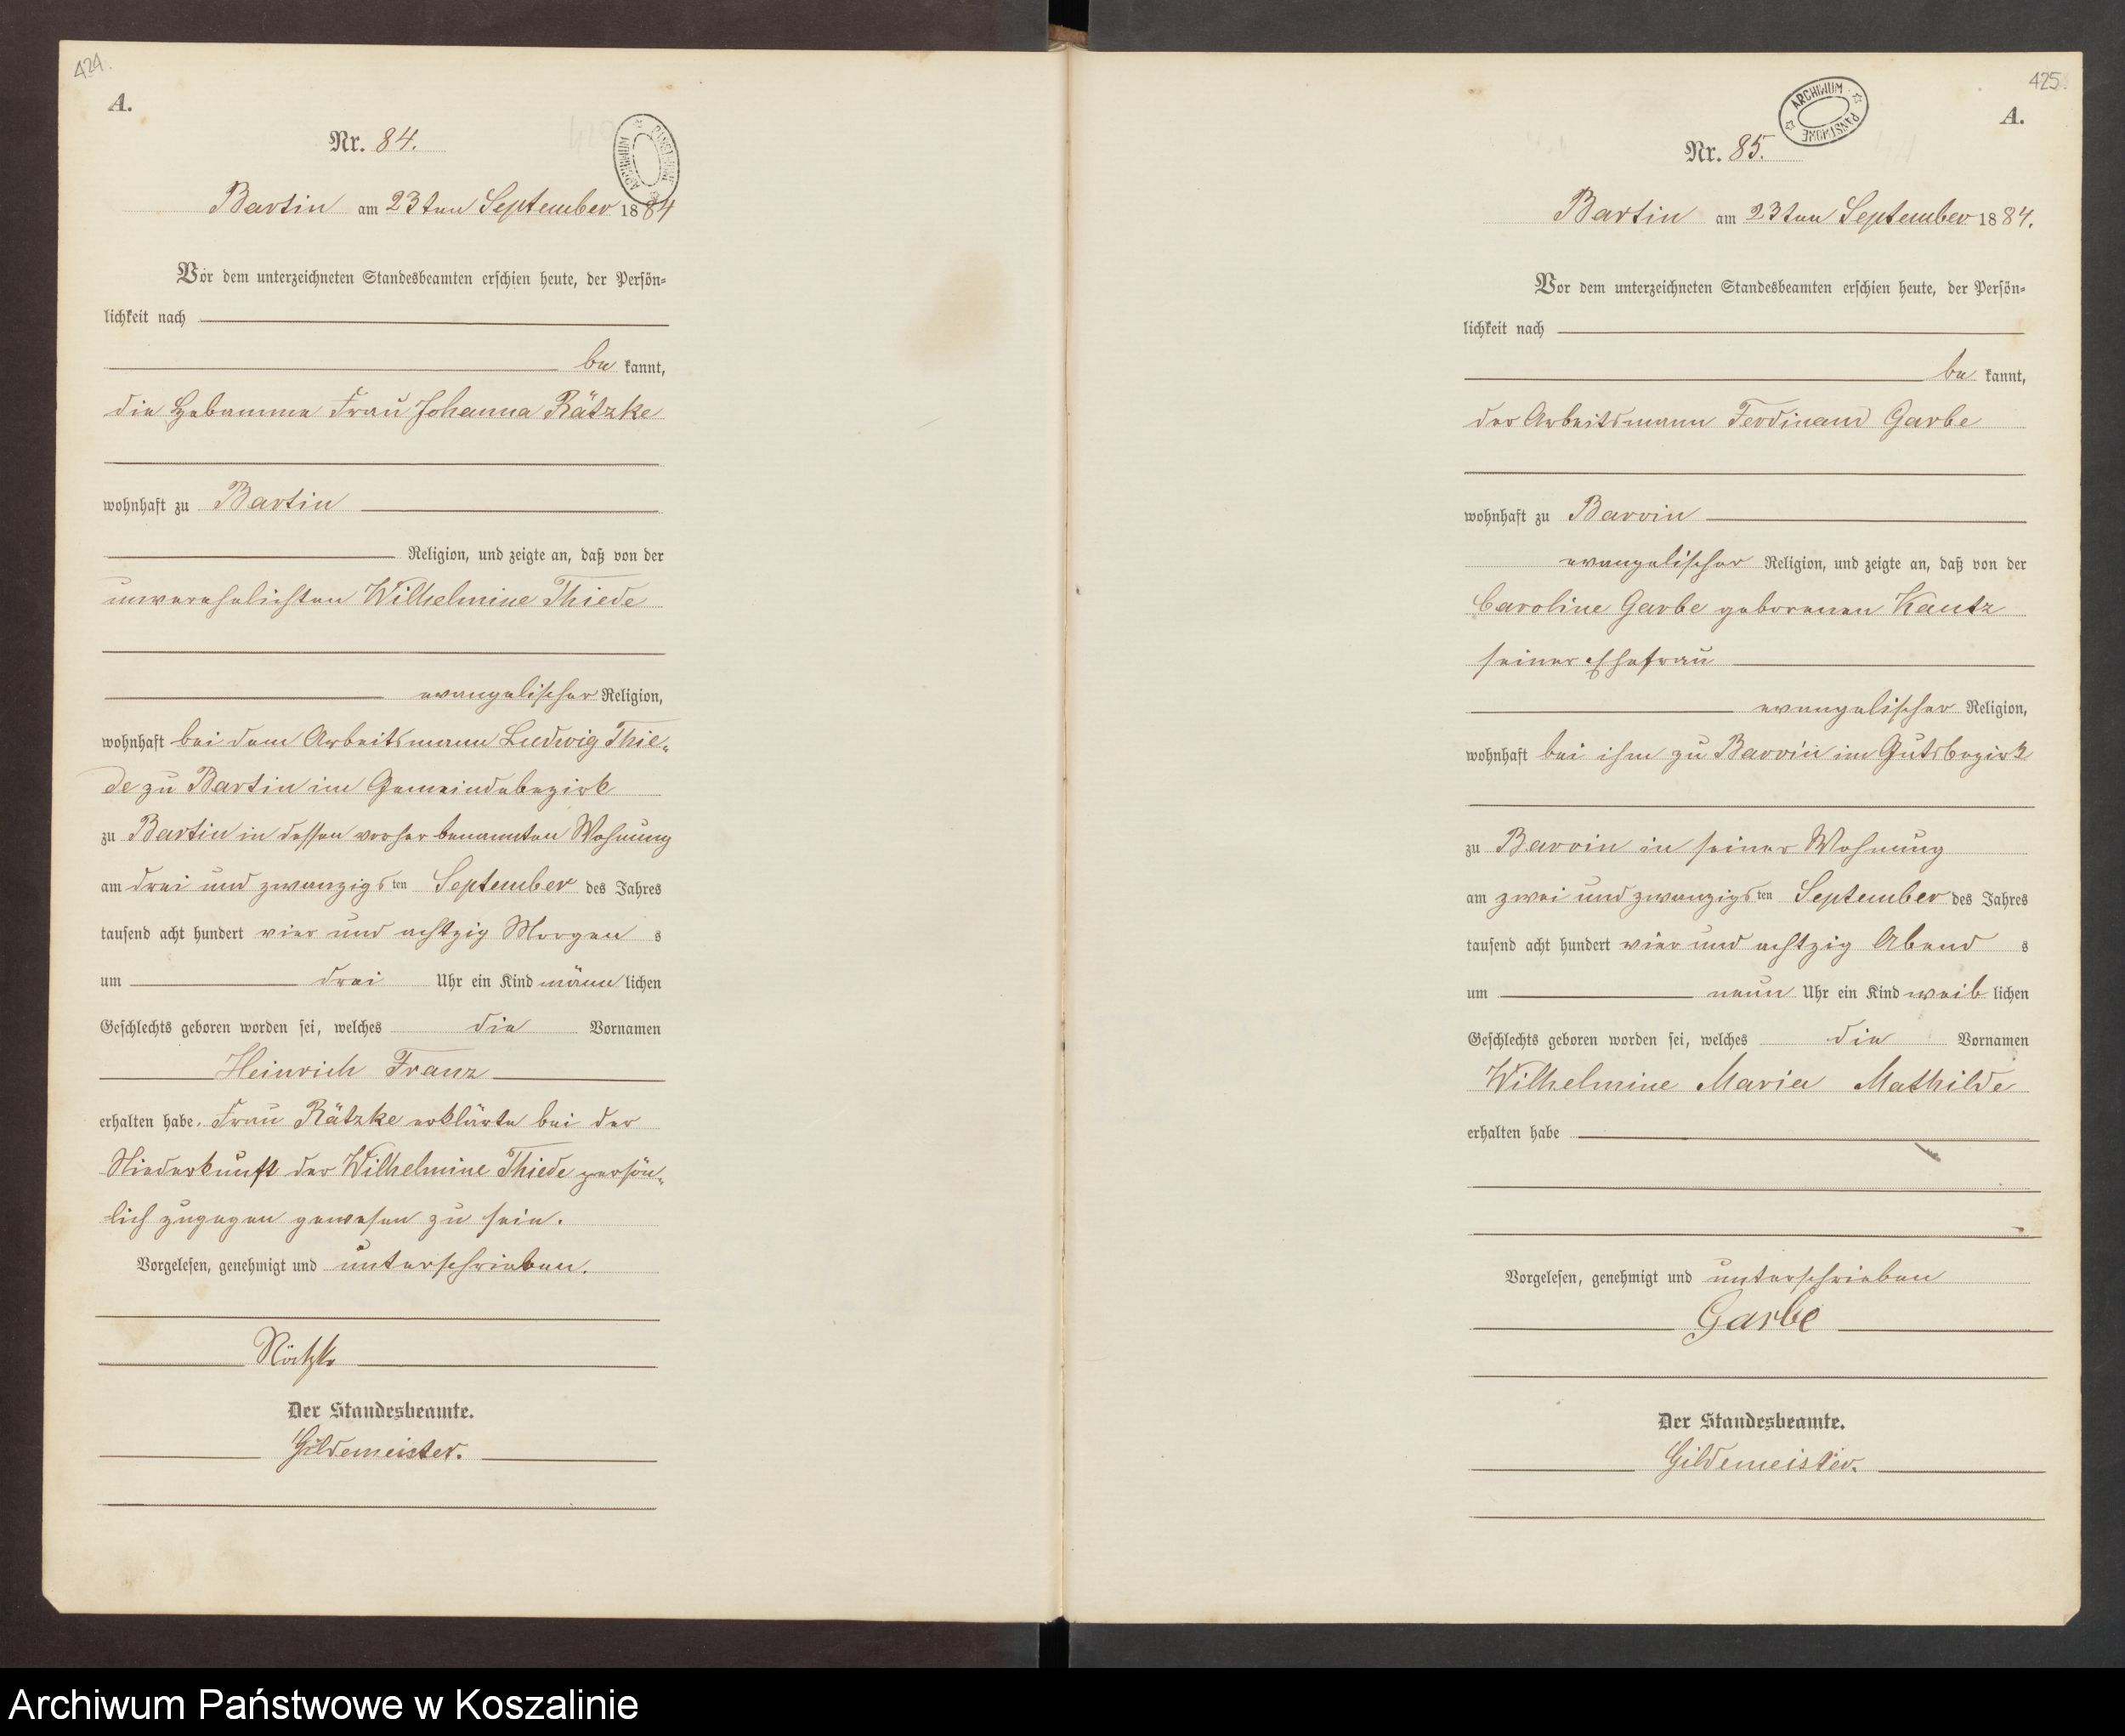 424.
A.
Nr. 84.
ARCHIWUM PAŃSTWOWE
Bartin am 23ten September 1884
Vor dem unterzeichneten Standesbeamten erschien heute, der Persön-
lichkeit nach
be kannt,
die Hebamme Frau Johanna Rätzke
wohnhaft zu Bartin
Religion, und zeigte an, daß von der
unverehelichten Wilhelmine Thiede
evangelischer Religion,
wohnhaft bei dem Arbeitsmann Ludwig Thie-
de zu Bartin im Gemeindebezirk
zu Bartin in dessen vorher benannten Wohnung
am drei und zwanzigsten September des Jahres
tausend acht hundert vier und achtzig Morgen s
um drei Uhr ein Kind männ lichen
Geschlechts geboren worden sei, welches die Vornamen
Heinrich Franz
erhalten habe. Frau Rätzke erklärte bei der
Niederkunft der Wilhelmine Thiede persön-
lich zugegen gewesen zu sein.
Vorgelesen, genehmigt und unterschrieben.
Rätzke
Der Standesbeamte.
Gildemeister.
425
A.
ARCHIWUM PAŃSTWOWE
Nr. 85.
Bartin am 23ten September 1884.
Vor dem unterzeichneten Standesbeamten erschien heute, der Persön-
lichkeit nach
be kannt,
der Arbeitsmann Ferdinand Garbe
wohnhaft zu Barvin
evangelischer Religion, und zeigte an, daß von der
Caroline Garbe geborenen Kautz
seiner Ehefrau
evangelischer Religion,
wohnhaft bei ihm zu Barvin im Gutsbezirk
zu Barvin in seiner Wohnung
am zwei und zwanzigsten September des Jahres
tausend acht hundert vier und achtzig Abend s
um neun Uhr ein Kind weib lichen
Geschlechts geboren worden sei, welches die Vornamen
Wilhelmine Maria Mathilde
erhalten habe
Vorgelesen, genehmigt und unterschrieben
Garbe
Der Standesbeamte.
Gildemeister.
Archiwum Państwowe w Koszalinie